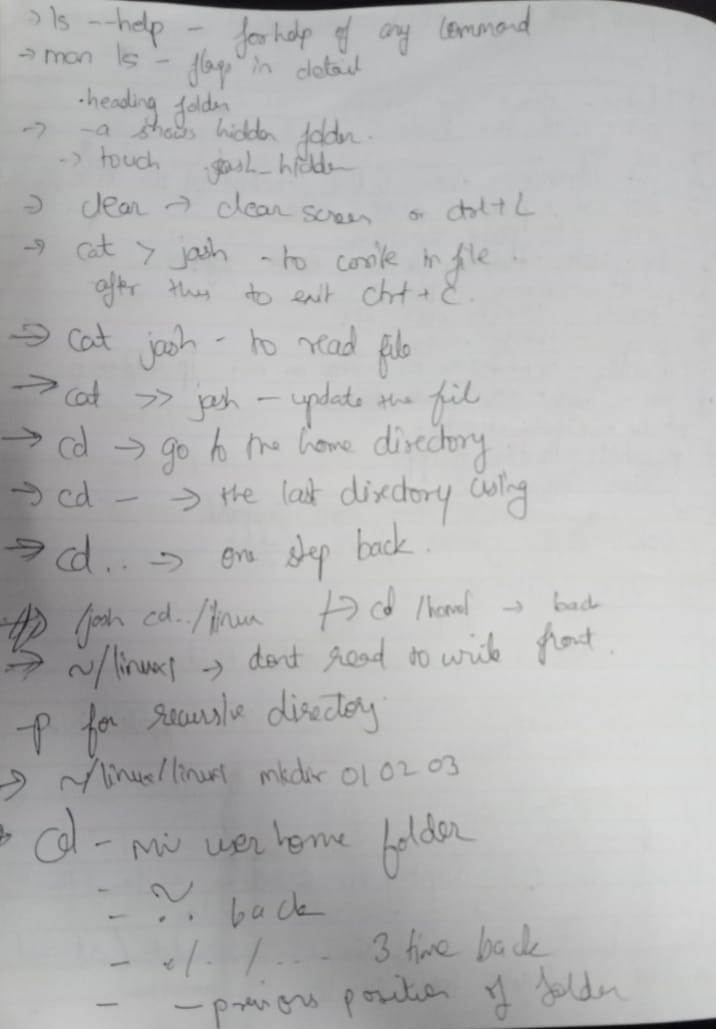 → ls --help - for help of any command
→ man ls - flags in detail
.heading folder
→ -a shows hidden folder.
→ touch jash_hidden
→ clear → clear screen or ctrl + L
→ cat > jash - to write in file.
after this to exit ctrl + C.
→ cat jash - to read file
→ cat >> jash - update the fil
→ cd → go to the home directory
→ cd - → the last directory using
→ cd .. → one step back.
/josh cd../linux → cd /home → back
→ ~/linux → dont read to write front.
-p for recursive directory
→ ~/linux/linux mkdir 01 02 03
cd - user home folder
- .. back
- 3 time back
- - previors position of folder